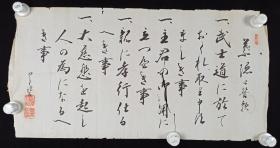 一、武士道に於て
おくれ取り申す
まじき事
一、主君の御用に
立つべき事
一、親に孝行仕る
べき事
一、大慈悲を起し
人の為になるべ
き事